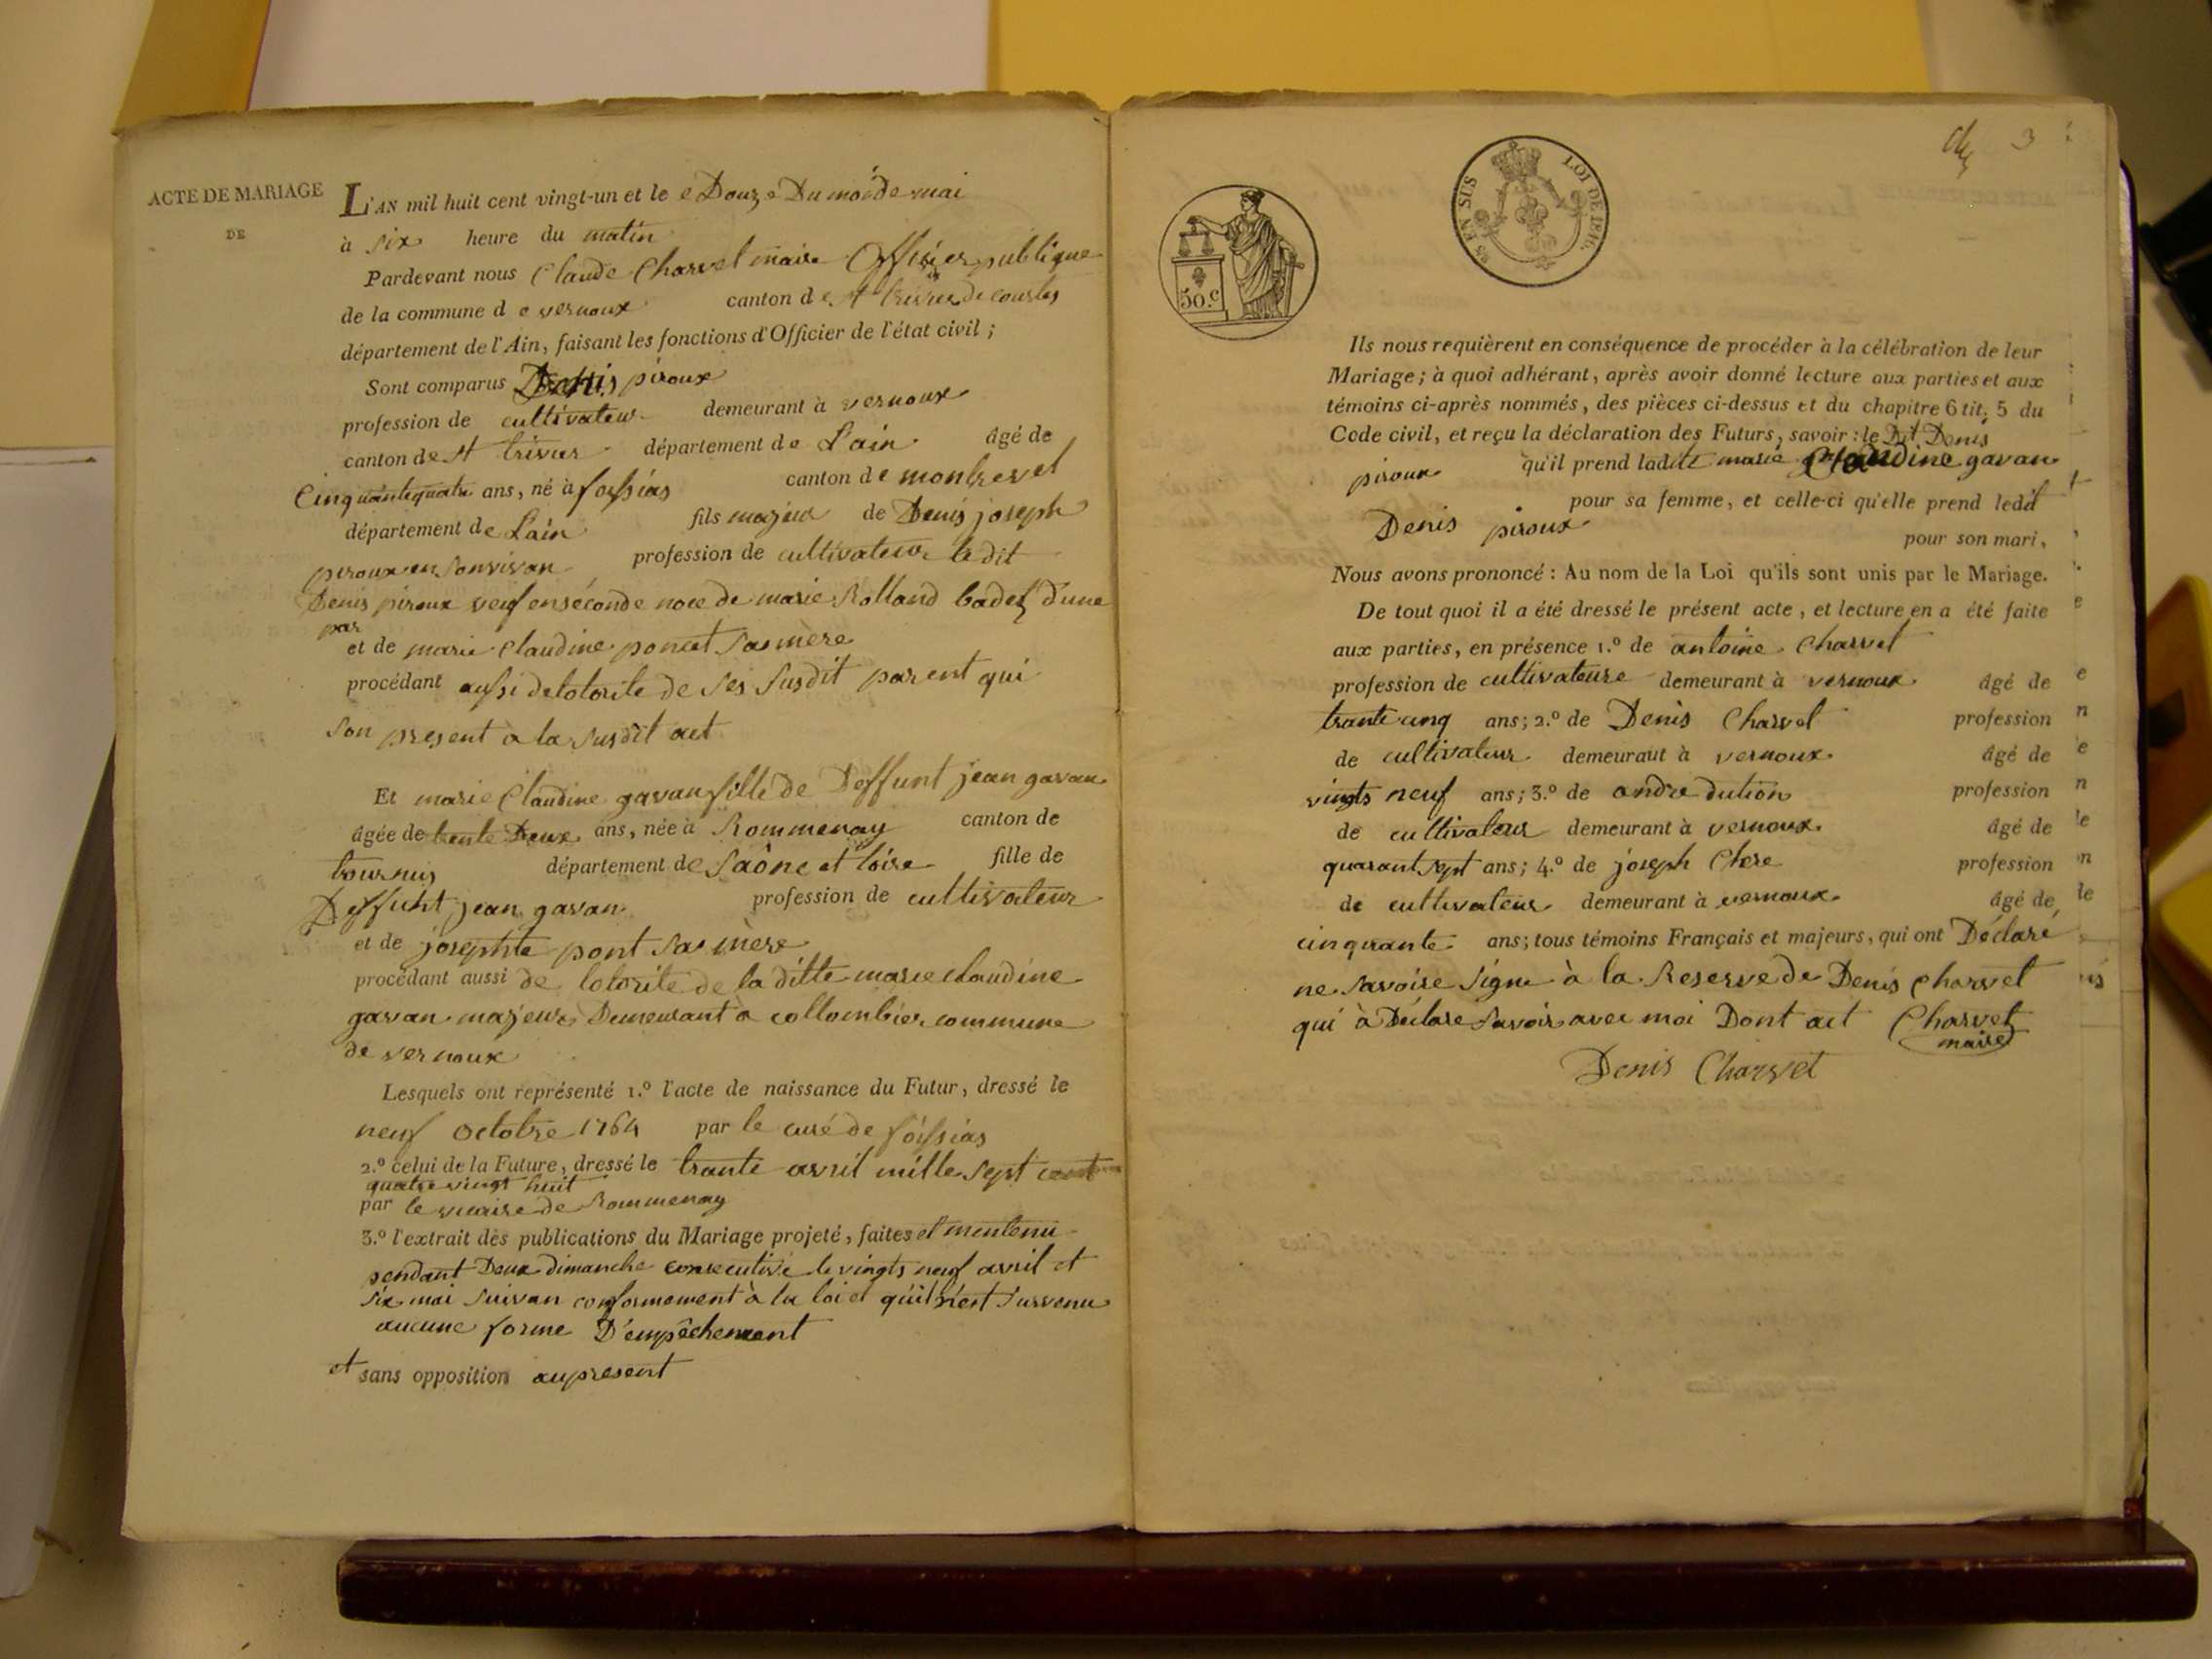 ACTE DE MARIAGE
DE
L'AN mil huit cent vingt-un et le e Douze Du moi de mai
à six heure du matin
Pardevant nous Claude Charvet maire Officier publique
de la commune d e vernoux canton d e St trivier de courtes
département de l'Ain, faisant les fonctions d'Officier de l'état civil ;
Sont comparus Denis piroux
profession de cultivateur demeurant à vernoux
canton de St trivier département de Lain âgé de
Cinquante quatre ans, né à foissias canton de montrevel
département de Lain fils majeur de Denis joseph
piroux en son vivan profession de cultivateur le dit
Denis piroux veuf en séconde noce de marie Rolland d'une
par
et de marie Claudine poncet Sa mère
procédant aussi de lotorite de ses susdit parent qui
son present à la susdit act
Et marie Claudine gavan fille de Deffunt jean gavan
âgée de trente Deux ans, née à Rommenay canton de
tournus département de Saône et loire fille de
Deffunt jean gavan profession de cultivateur
et de josephte pont Sa mère
procédant aussi de lotorite de la ditte marie claudine
gavan majeure Demeurant à collombier commune
de vernoux
Lesquels ont représenté 1.º l'acte de naissance du Futur, dressé le
neuf octobre 1764 par le curé de foissias
2.º celui de la Future, dressé le trante avril mille sept cent
quatre vingt huit
par le vicaire de Rommenay
3.º l'extrait des publications du Mariage projeté, faites et mentenu
pendant Deux dimanche consecutive le vingts neuf avril et
six mai suivan conformement à la loi et qu'il n'est survenu
aucune forme D'empêchement
et sans opposition au present
50.c
EN SUS
LOI DE 1816.
3
Ils nous requièrent en conséquence de procéder à la célébration de leur
Mariage ; à quoi adhérant, après avoir donné lecture aux parties et aux
témoins ci-après nommés, des pièces ci-dessus et du chapitre 6 tit. 5 du
Code civil, et reçu la déclaration des Futurs, savoir : le Dit Denis
piroux qu'il prend ladite marie Claudine gavan
pour sa femme, et celle-ci qu'elle prend ledit
Denis piroux
pour son mari,
Nous avons prononcé : Au nom de la Loi qu'ils sont unis par le Mariage.
De tout quoi il a été dressé le présent acte, et lecture en a été faite
aux parties, en présence 1.º de antoine Charvet
profession de cultivateure demeurant à vernoux âgé de
trante cinq ans ; 2.º de Denis Charvet profession
de cultivateur demeurant à vernoux âgé de
vingts neuf ans ; 3.º de andre dution profession
de cultivateur demeurant à vernoux âgé de
quarant sept ans ; 4.º de joseph Chere profession
de cultivateur demeurant à vernoux âgé de
cinquante ans ; tous témoins Français et majeurs, qui ont Déclaré
ne savoire signe à la Reserve de Denis Charvet
qui à Déclare savoir avec moi Dont act Charvet
maire
Denis Charvet